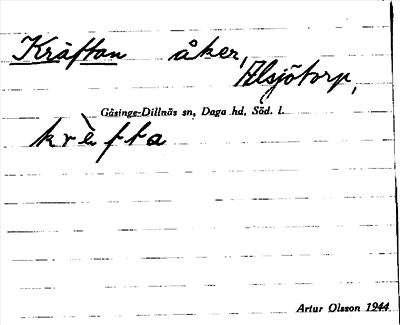 Kräftan åker,
Alsjötorp,
Gåsinge-Dillnäs sn, Daga hd, Söd. l.
krèfta
Artur Olsson 1944